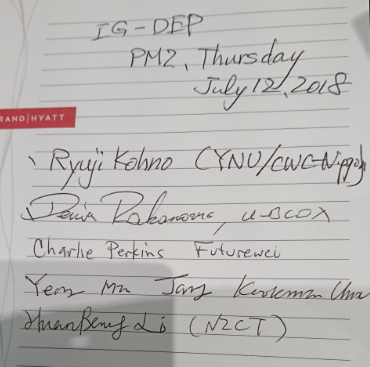 IG-DEP
PM2, Thursday
July 12, 2018
RAND|HYATT
Ryuji Kohno (YNU/CWC-Nippon)
u-blox
Charlie Perkins Futurewei
Yeong Min Jang Kookmin Univ
HuanBang Li (NICT)